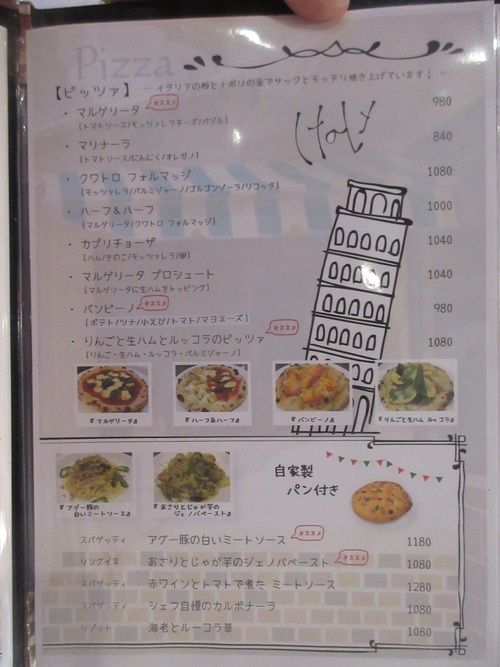 Pizza
【ピッツァ】 ～ イタリアの粉とナポリの釜でサックとモッチリ焼き上げています！ ～
・ マルゲリータ オススメ 980
［トマトソース/モッツァレラチーズ/バジル］
・ マリナーラ 840
［トマトソース/にんにく/オレガノ］
・ クワトロ フォルマッジ 1080
［モッツァレラ/パルミジャーノ/ゴルゴンゾーラ/リコッタ］
・ ハーフ＆ハーフ 1000
［マルゲリータ/クワトロ フォルマッジ］
・ カプリチョーザ 1040
［ハム/きのこ/モッツァレラ/卵］
・ マルゲリータ プロシュート 1040
［マルゲリータに生ハムをトッピング］
・ バンビーノ オススメ 980
［ポテト/ツナ/小えび/トマト/マヨネーズ］
・ りんごと生ハムとルッコラのピッツァ オススメ 1080
［りんご・生ハム・ルッコラ・パルミジャーノ］
Italy
『マルゲリータ』 『ハーフ&ハーフ』 『バンビーノ』 『りんごと生ハム ルッコラ』
『アグー豚の
白いミートソース』
『あさりとじゃが芋の
ジェノバペースト』
自家製
パン付き
スパゲッティ アグー豚の白いミートソース オススメ 1180
リングイネ あさりとじゃが芋のジェノバペースト オススメ 1080
スパゲッティ 赤ワインとトマトで煮た ミートソース 1280
スパゲッティ シェフ自慢のカルボナーラ 1080
リゾット 海老とルーコラ草 1080